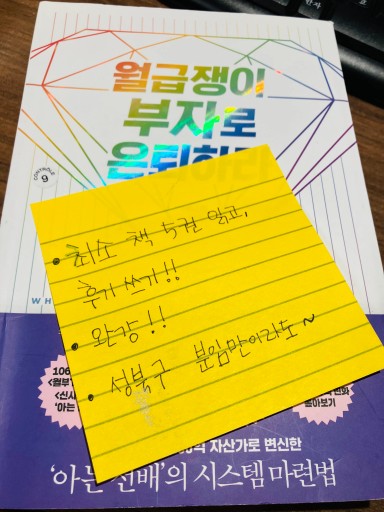 월급쟁이
부자로
은퇴하라
CONTINUOUS
9
• 최소 책 5권 읽고,
후기 쓰기!!
• 완강!!
• 성북구 분임만이라도~
WH
106
<월부
<신사
'아는
변화
돌아보기
자산가로 변신한
'아는 선배'의 시스템 마련법
한자